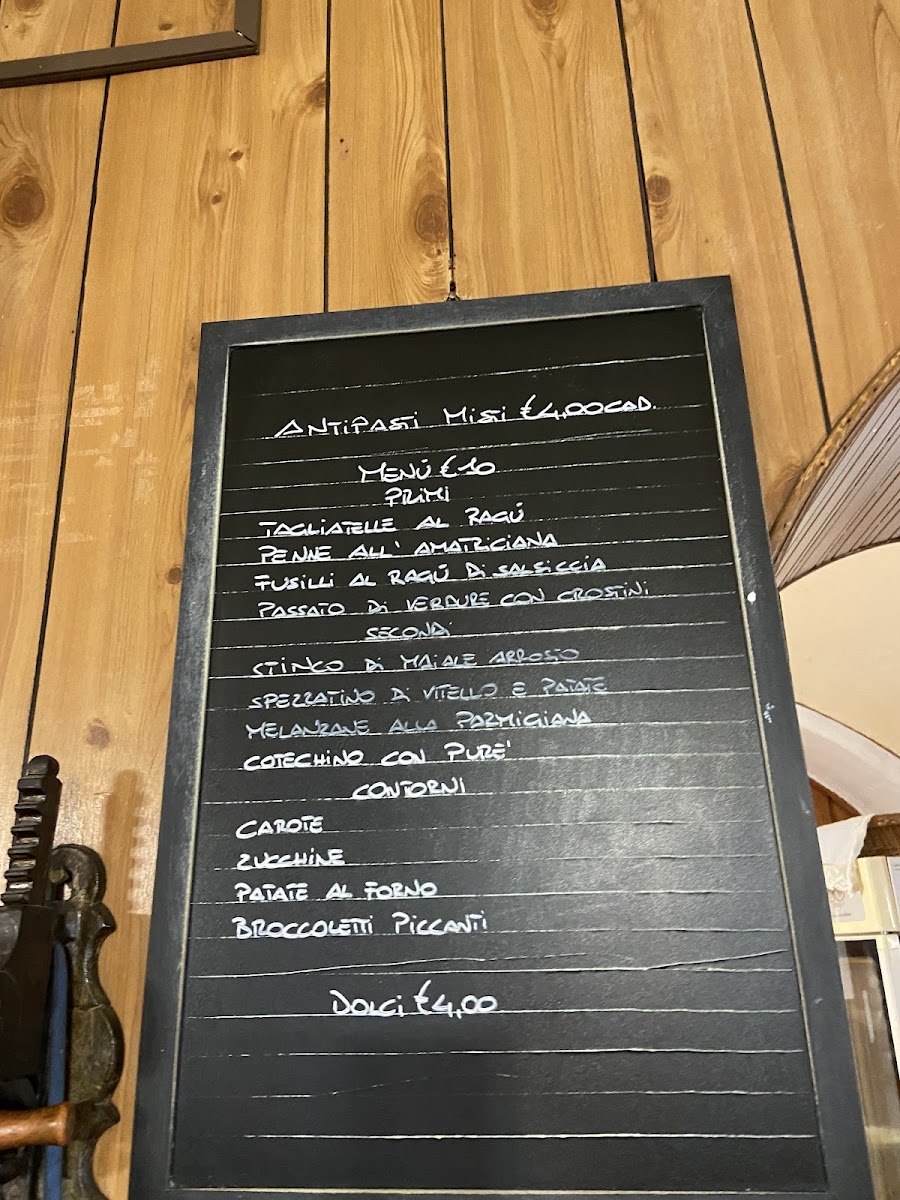 ANTIPASTI MISTI €4,00 CAD.
MENÚ €10
PRIMI
TAGLIATELLE AL RAGÚ
PENNE ALL' AMATRICIANA
FUSILLI AL RAGÚ DI SALSICCIA
PASSATO DI VERDURE CON CROSTINI
SECONDI
STINCO DI MAIALE ARROSTO
SPEZZATINO DI VITELLO E PATATE
MELANZANE ALLA PARMIGIANA
COTECHINO CON PURE'
CONTORNI
CAROTE
ZUCCHINE
PATATE AL FORNO
BROCCOLETTI PICCANTI
DOLCI €4,00